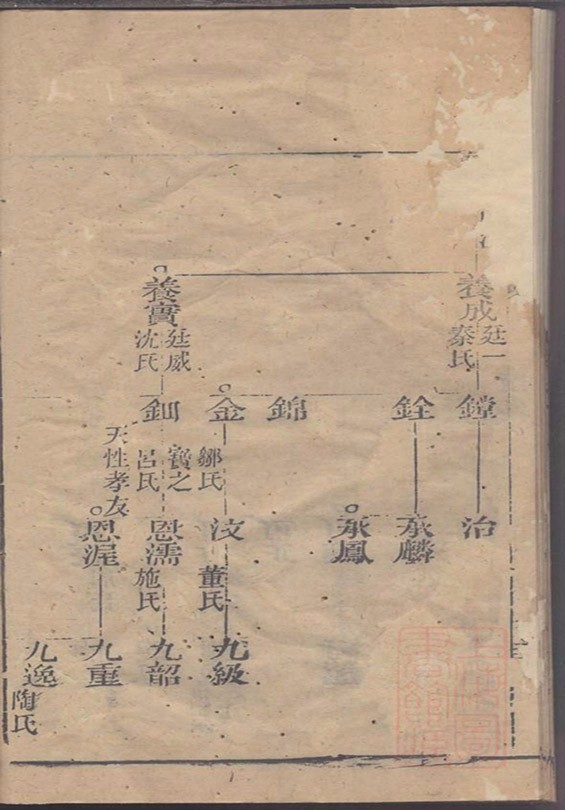 養成
廷一
秦氏
養實
廷威
沈氏
鏜
銓
錦
金
鄒氏
釧
寶之
呂氏
天性孝友
治
承麟
承鳳
汶
董氏
恩濡
施氏
恩渥
九級
九韶
九重
九逸
陶氏